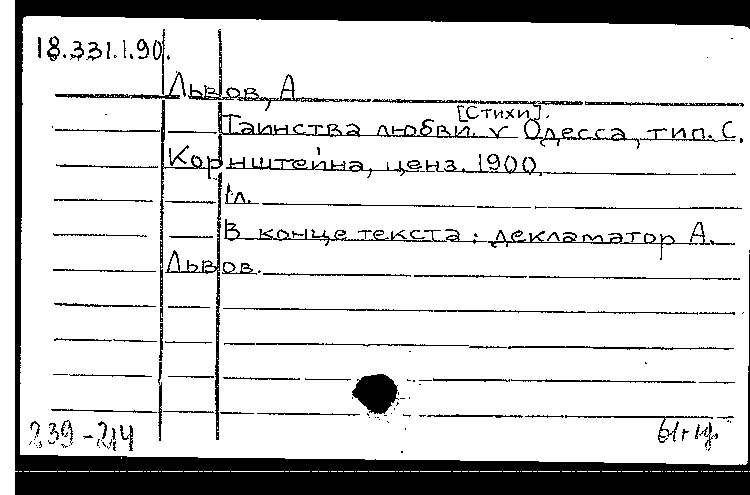 18.331.1.90.
Львов, А
[Стихи].
Таинства любви. v Одесса, тип. С.
Корнштейна, ценз. 1900.
1л.
В конце текста: декламатор А.
Львов.
239-214